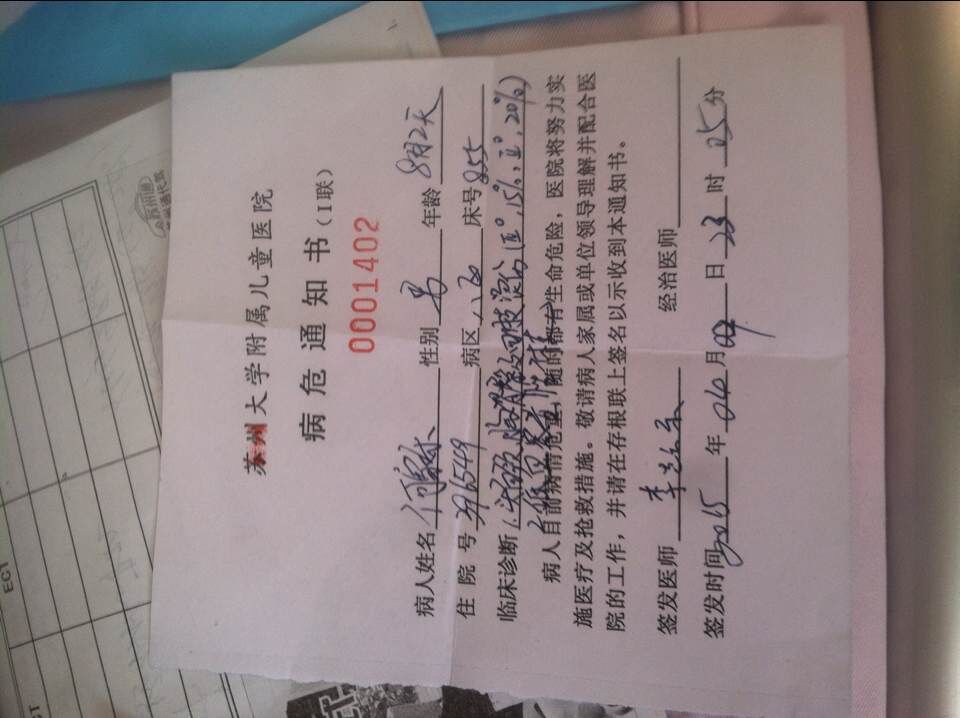 苏州大学附属儿童医院
病危通知书(I联)
0001402
病人姓名 性别 男 年龄 8月2天
住院号 396549 病区 床号 255
临床诊断 1. 头颈胸腹四肢烫伤(Ⅲ°,15%;Ⅱ°,20%)
病人目前病情危重,随时都有生命危险,医院将努力实
施医疗及抢救措施。敬请病人家属或单位领导理解并配合医
院的工作,并请在存根联上签名以示收到本通知书。
签发医师 李 经治医师
签发时间 2015 年 04 月 07 日 23 时 25 分
ECT
CT